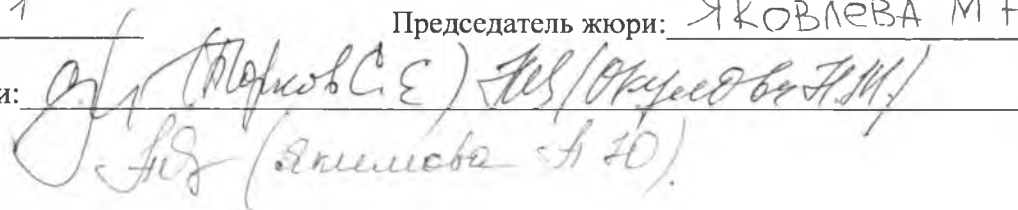 1 Председатель жюри: ЯКОВЛЕВА М
и: (Торков С.Е) (Окулова Н.М)
(Якимова А Ю).